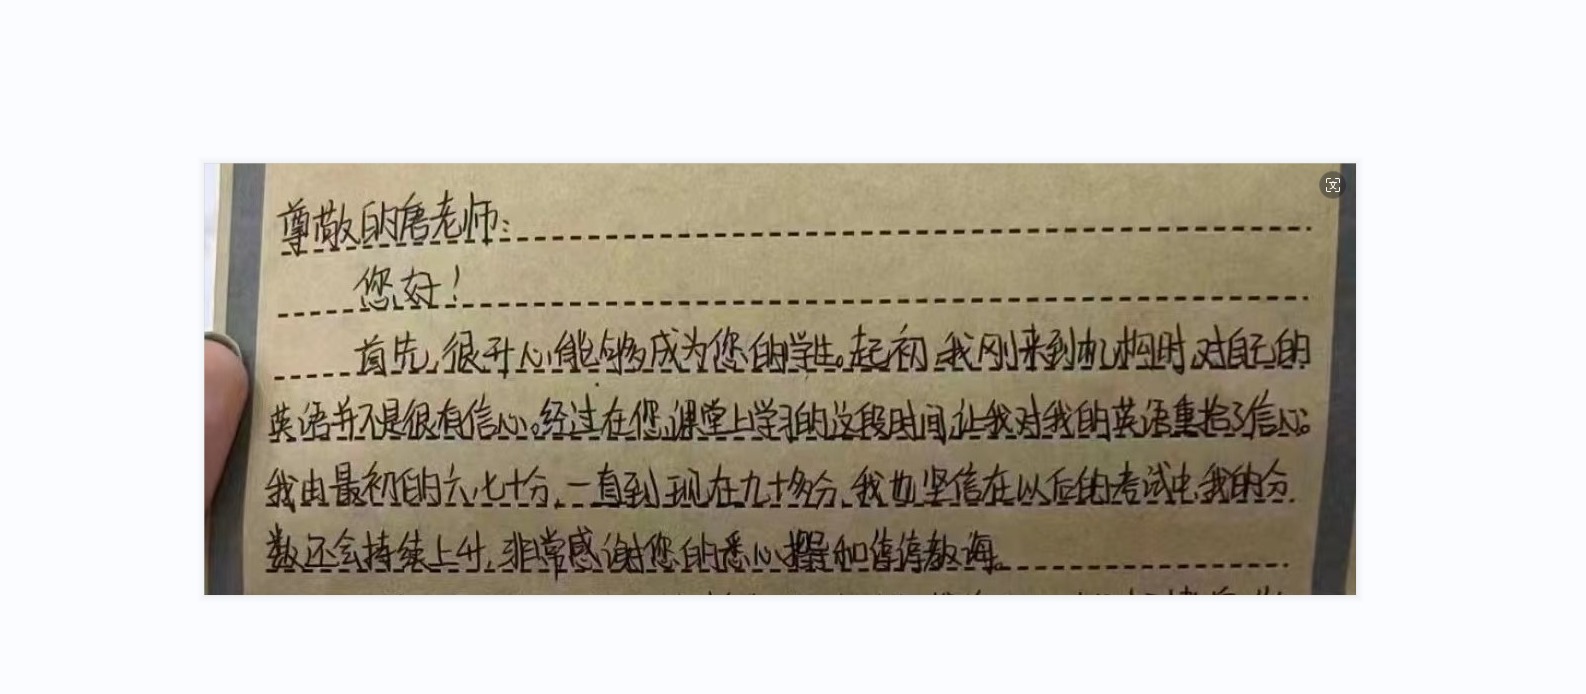 尊敬的唐老师:
您好!
首先,很开心能够成为您的学生。起初,我刚来到机构时,对自己的
英语并不是很有信心。经过在您课堂上学习的这段时间,让我对我的英语重拾了信心。
我由最初的六七十分,一直到现在九十多分,我也坚信在以后的考试中,我的分
数还会持续上升,非常感谢您的悉心指导和谆谆教诲。